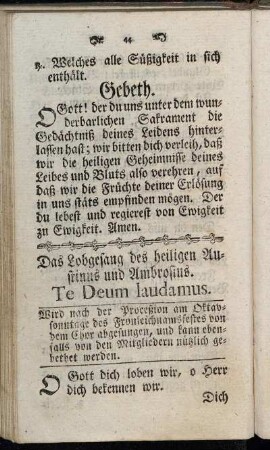 44
℟. Welches alle Süßigkeit in sich
enthält.
Gebeth.
O Gott! der du uns unter dem wun-
derbarlichen Sakrament die
Gedächtniß deines Leidens hinter-
lassen hast; wir bitten dich verleih, daß
wir die heiligen Geheimnisse deines
Leibes und Bluts also verehren, auf
daß wir die Früchte deiner Erlösung
in uns stäts empfinden mögen. Der
du lebest und regierest von Ewigkeit
zu Ewigkeit. Amen.
Das Lobgesang des heiligen Au-
stinus und Ambrosius.
Te Deum laudamus.
Wird nach der Procession am Oktav-
sonntage des Fronleichnamsfestes von
dem Chor abgesungen, und kann eben-
falls von den Mitgliedern nützlich ge-
bethet werden.
O Gott dich loben wir, o Herr
dich bekennen wir.
Dich